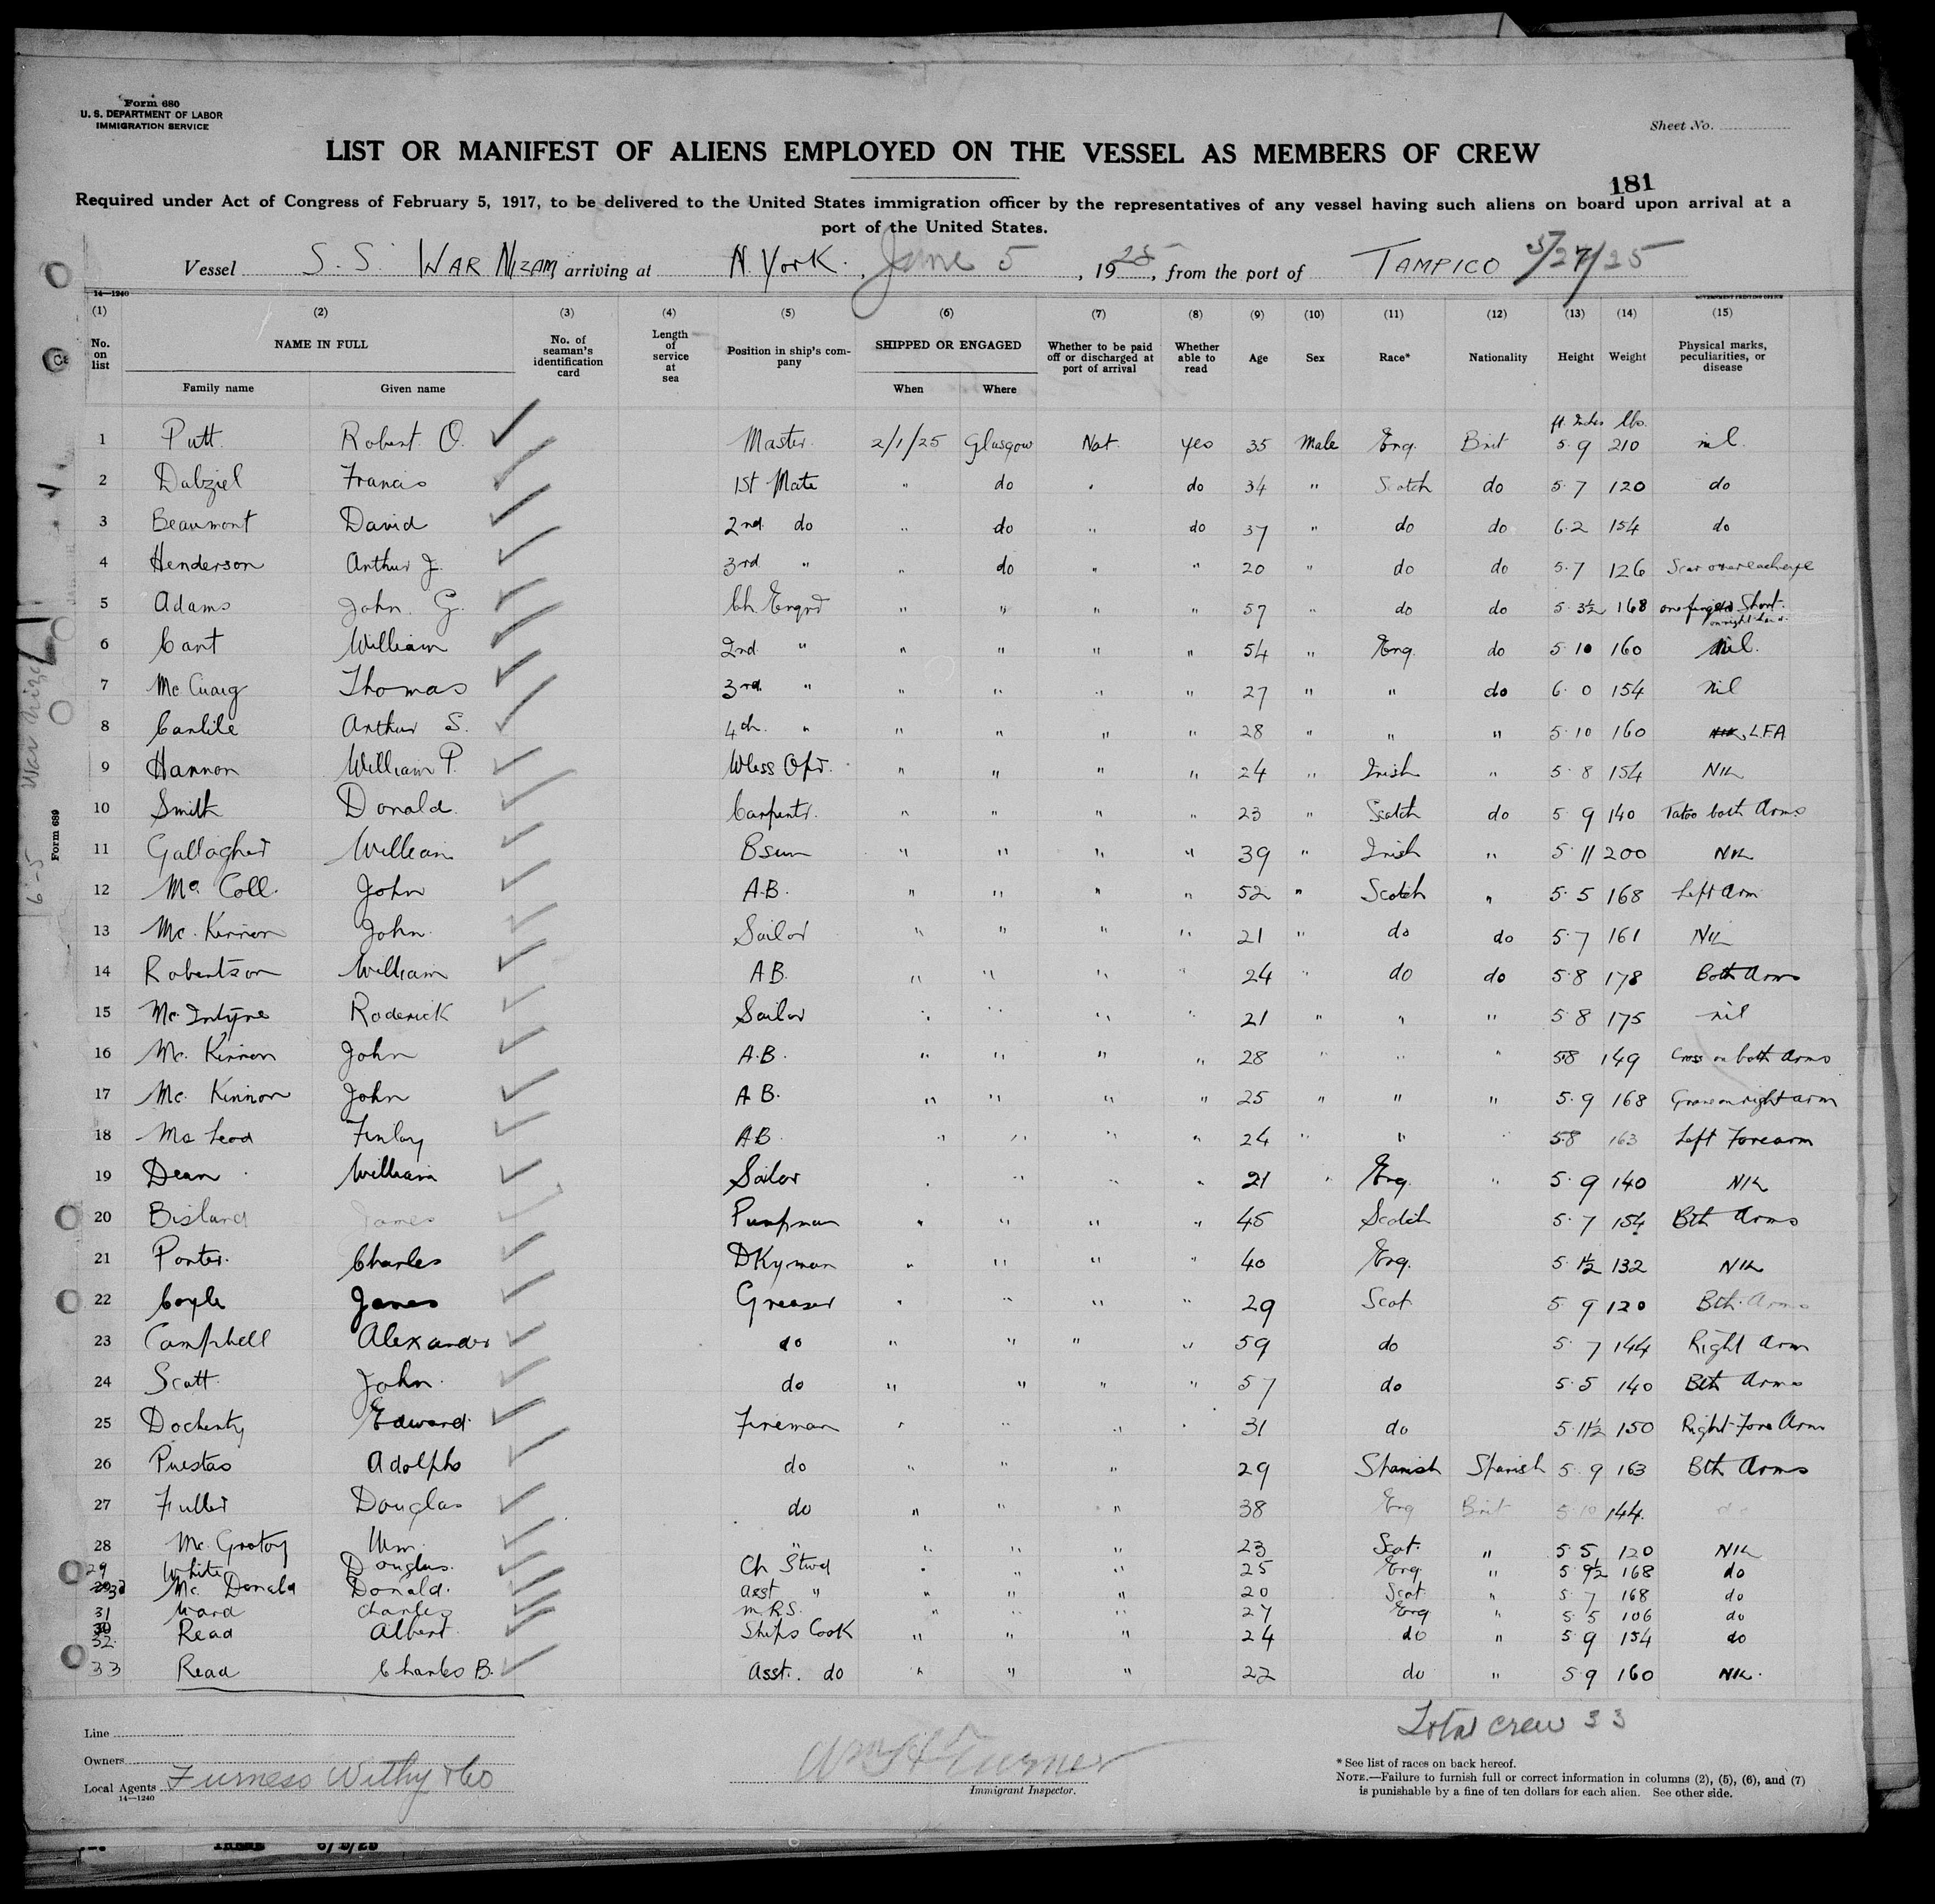 Form 680
U. S. DEPARTMENT OF LABOR
IMMIGRATION SERVICE
Sheet No.
LIST OR MANIFEST OF ALIENS EMPLOYED ON THE VESSEL AS MEMBERS OF CREW
181
Required under Act of Congress of February 5, 1917, to be delivered to the United States immigration officer by the representatives of any vessel having such aliens on board upon arrival at a
port of the United States.
Vessel S. S. WAR NIZAM arriving at N. York. June 5, 1925, from the port of TAMPICO 5/27/25
14—1240 GOVERNMENT PRINTING OFFICE
(1) (2) (3) (4) (5) (6) (7) (8) (9) (10) (11) (12) (13) (14) (15)
No. on list NAME IN FULL No. of seaman's identification card Length of service at sea Position in ship's company SHIPPED OR ENGAGED Whether to be paid off or discharged at port of arrival Whether able to read Age Sex Race* Nationality Height Weight Physical marks, peculiarities, or disease
Family name Given name When Where
ft. Inches lbs.
1 Putt. Robert O. Master. 2/1/25 Glasgow Not. yes 35 Male Eng. Brit 5·9 210 nil.
2 Dalziel Francis 1st Mate " do " do 34 " Scotch do 5·7 120 do
3 Beaumont David 2nd do " do " do 37 " do do 6·2 154 do
4 Henderson Arthur J. 3rd " " do " " 20 " do do 5·7 126 Scar over each eye
5 Adams John. G. Ch. Engnr " " " " 57 " do do 5·3½ 168 one finger Short. on right hand.
6 Cant William 2nd " " " " " 54 " Eng. do 5·10 160 nil.
7 Mc Cuaig Thomas 3rd " " " " " 27 " " do 6·0 154 nil
8 Carlile Arthur S. 4th " " " " " 28 " " " 5·10 160 L.F.A
9 Hannon William P. Wless Opr. " " " " 24 " Irish " 5·8 154 Nil
10 Smith Donald. Carpentr. " " " " 23 " Scotch do 5·9 140 Tatoo both Arms
11 Gallagher William Bsun " " " " 39 " Irish " 5·11 200 Nil
12 Mc. Coll. John A.B. " " " " 52 " Scotch " 5·5 168 Left arm
13 Mc. Kinnon John. Sailor " " " " 21 " do do 5·7 161 Nil
14 Robertson William A.B. " " " " 24 " do do 5·8 178 Both Arms
15 Mc. Intyre Roderick Sailor " " " " 21 " " " 5·8 175 nil
16 Mc. Kinnon John A.B. " " " " 28 " " " 5·8 149 Cross on both arms
17 Mc. Kinnon John A B. " " " " 25 " " " 5·9 168 on right arm
18 Mc Leod Finlay A.B. " " " " 24 " " " 5·8 163 Left Forearm
19 Dean William Sailor " " " " 21 " Eng. " 5·9 140 Nil
20 Bisland James Pumpman " " " " 45 Scotch 5·7 154 Bth Arms
21 Porter. Charles DKyman " " " " 40 Eng. 5·1½ 132 Nil
22 Coyle James Greaser " " " " 29 Scot 5·9 120 Bth. Arms
23 Campbell Alexander do " " " " 59 do 5·7 144 Right Arm
24 Scott John. do " " " " 57 do 5·5 140 Bth Arms
25 Docherty Edward. Fireman " " " " 31 do 5·11½ 150 Right Fore Arm
26 Puestas Adolpho do " " " 29 Spanish Spanish 5·9 163 Bth Arms
27 Fuller Douglas do " " " 38 Eng Brit 5·10 144. do
28 Mc. Wm. " " " " 23 Scot. " 5·5 120 Nil
29 White Douglas. Ch Stwd " " " 25 Eng " 5·9½ 168 do
30 Mc. Donald Donald. asst " " " " 20 Scot " 5·7 168 do
31 Ward Charles m.R.S. " " " 27 Eng " 5·5 106 do
32. Read Albert Ships Cook " " " 24 do " 5·9 154 do
33 Read Charles B. Asst. do " " " 22 do " 5·9 160 Nil.
Form 689
6-5 War Nizam
Total crew 33
Line
Owners
Local Agents Furness Withy & Co
14—1240
Wm H Turner
Immigrant Inspector.
* See list of races on back hereof.
NOTE.—Failure to furnish full or correct information in columns (2), (5), (6), and (7)
is punishable by a fine of ten dollars for each alien. See other side.